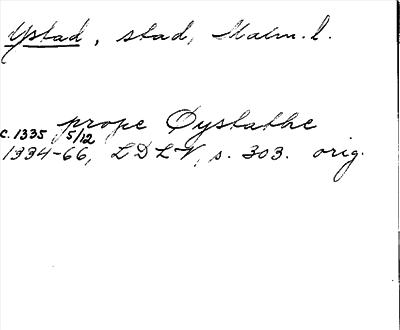 Ystad, stad, Malm. l.
prope Øystathe
c. 1335 5/12
1334-66, LDLV, s. 303. orig.